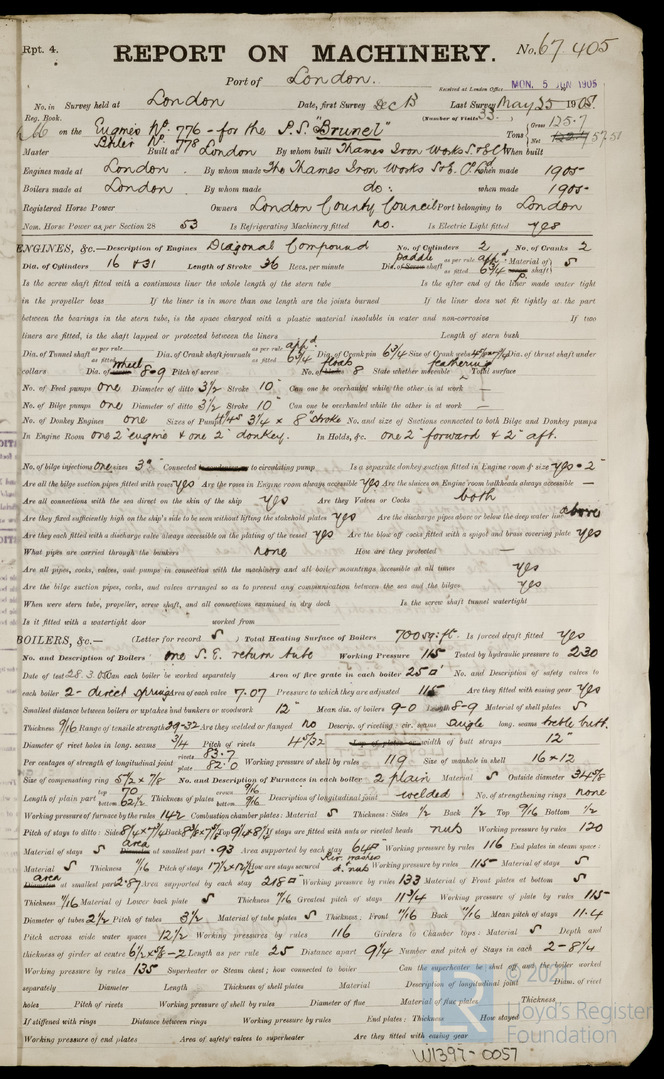 Rpt. 4.
REPORT ON MACHINERY.
No. 67405
Port of London.
Received at London Office MON. 5 JUN 1905
No. in Survey held at London Date, first Survey Dec 13 Last Survey May 25 1905
Reg. Book. (Number of Visits 33)
on the Engines No. 776 - for the P.S. "Brunel" Tons Gross 125.7 Net
Boiler No. 778
Master Built at London By whom built Thames Iron Works When built
Engines made at London. By whom made The Thames Iron Works when made 1905
Boilers made at London. By whom made do: when made 1905
Registered Horse Power Owners London County Council Port belonging to London
Nom. Horse Power as per Section 28 53 Is Refrigerating Machinery fitted no. Is Electric Light fitted yes
ENGINES, &c.—Description of Engines Diagonal Compound No. of Cylinders 2 No. of Cranks 2
Dia. of Cylinders 16 & 31 Length of Stroke 36 Revs. per minute Dia. of Screw shaft paddle as per rule app'd as fitted 6 3/4 Material of shaft S
Is the screw shaft fitted with a continuous liner the whole length of the stern tube Is the after end of the liner made water tight
in the propeller boss If the liner is in more than one length are the joints burned If the liner does not fit tightly at the part
between the bearings in the stern tube, is the space charged with a plastic material insoluble in water and non-corrosive If two
liners are fitted, is the shaft lapped or protected between the liners Length of stern bush
Dia. of Tunnel shaft as per rule as fitted Dia. of Crank shaft journals as per rule app'd as fitted 6 3/4 Dia. of Crank pin 6 3/4 Size of Crank webs Dia. of thrust shaft under
collars Dia. of wheel 8-9 Pitch of screw No. of floats 8 State whether moveable feathering Total surface
No. of Feed pumps one Diameter of ditto 3 1/2 Stroke 10" Can one be overhauled while the other is at work —
No. of Bilge pumps one Diameter of ditto 3 1/2 Stroke 10" Can one be overhauled while the other is at work —
No. of Donkey Engines one Sizes of Pumps 3 1/4 x 8" stroke No. and size of Suctions connected to both Bilge and Donkey pumps
In Engine Room one 2" engine & one 2" donkey. In Holds, &c. one 2" forward & 2" aft.
No. of bilge injections one sizes 3" Connected to circulating pump Is a separate donkey suction fitted in Engine room & size yes - 2"
Are all the bilge suction pipes fitted with roses yes Are the roses in Engine room always accessible yes Are the sluices on Engine room bulkheads always accessible —
Are all connections with the sea direct on the skin of the ship yes Are they Valves or Cocks both
Are they fixed sufficiently high on the ship's side to be seen without lifting the stokehold plates yes Are the discharge pipes above or below the deep water line above
Are they each fitted with a discharge valve always accessible on the plating of the vessel yes Are the blow off cocks fitted with a spigot and brass covering plate yes
What pipes are carried through the bunkers none How are they protected —
Are all pipes, cocks, valves, and pumps in connection with the machinery and all boiler mountings accessible at all times yes
Are the bilge suction pipes, cocks, and valves arranged so as to prevent any communication between the sea and the bilges yes
When were stern tube, propeller, screw shaft, and all connections examined in dry dock Is the screw shaft tunnel watertight
Is it fitted with a watertight door worked from
BOILERS, &c.— (Letter for record S) Total Heating Surface of Boilers 700 sq: ft. Is forced draft fitted yes
No. and Description of Boilers one S.E. return tube Working Pressure 115 Tested by hydraulic pressure to 230
Date of test 28.3.05 Can each boiler be worked separately Area of fire grate in each boiler 25 □' No. and Description of safety valves to
each boiler 2 - direct spring Area of each valve 7.07 Pressure to which they are adjusted 115 Are they fitted with easing gear yes
Smallest distance between boilers or uptakes and bunkers or woodwork 12" Mean dia. of boilers 9-0 Length 8-9 Material of shell plates S
Thickness 9/16 Range of tensile strength 29-32 Are they welded or flanged no Descrip. of riveting: cir. seams single long. seams treble butt.
Diameter of rivet holes in long. seams 3/4 Pitch of rivets 4 5/32 Lap of plates or width of butt straps 12"
Per centages of strength of longitudinal joint rivets 83.7 plate 82.0 Working pressure of shell by rules 119 Size of manhole in shell 16 x 12
Size of compensating ring 5 1/2 x 7/8 No. and Description of Furnaces in each boiler 2 plain Material S Outside diameter 34 5/8
Length of plain part top 70 bottom 62 1/2 Thickness of plates crown 9/16 bottom 9/16 Description of longitudinal joint welded No. of strengthening rings none
Working pressure of furnace by the rules 142 Combustion chamber plates: Material S Thickness: Sides 1/2 Back 1/2 Top 9/16 Bottom 1/2
Pitch of stays to ditto: Sides 8 1/4 x 7 1/4 Back Top If stays are fitted with nuts or riveted heads nuts Working pressure by rules 120
Material of stays S area at smallest part .93 Area supported by each stay 64 Working pressure by rules 116 End plates in steam space:
Material S Thickness 11/16 Pitch of stays How are stays secured d. nuts Working pressure by rules 115 Material of stays S
area at smallest part 2.87 Area supported by each stay 218 □" Working pressure by rules 133 Material of Front plates at bottom S
Thickness 11/16 Material of Lower back plate S Thickness 11/16 Greatest pitch of stays 11 3/4 Working pressure of plate by rules 115
Diameter of tubes 2 1/2 Pitch of tubes 3 1/2 Material of tube plates S Thickness: Front 11/16 Back 11/16 Mean pitch of stays 11.4
Pitch across wide water spaces 12 1/2 Working pressures by rules 116 Girders to Chamber tops: Material S Depth and
thickness of girder at centre 6 1/2 x 5/8 - 2 Length as per rule 25 Distance apart 9 1/4 Number and pitch of Stays in each 2 - 8 1/4
Working pressure by rules 135 Superheater or Steam chest; how connected to boiler Can the superheater be shut off and the boiler worked
separately Diameter Length Thickness of shell plates Material Description of longitudinal joint Diam. of rivet
holes Pitch of rivets Working pressure of shell by rules Diameter of flue Material of flue plates Thickness
If stiffened with rings Distance between rings Working pressure by rules End plates: Thickness How stayed
Working pressure of end plates Area of safety valves to superheater Are they fitted with easing gear
© 2021
LR
Lloyd's Register
Foundation
W1397-0057